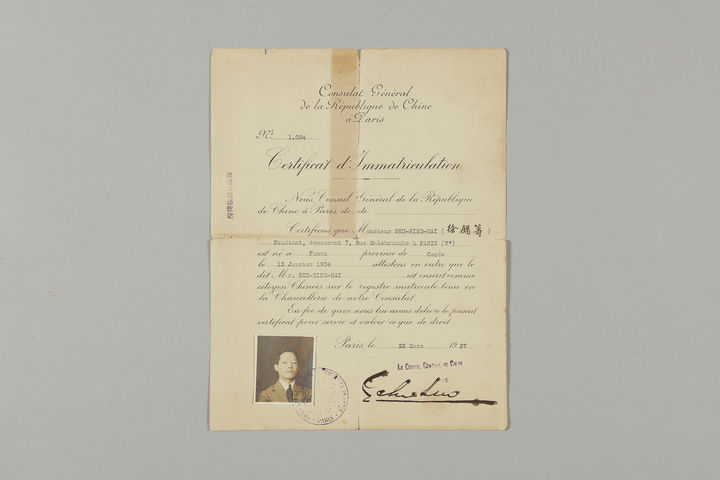 Consulat Général
de la République de Chine
à Paris
Nº 1.094
Certificat d'Immatriculation
Nous Consul Général de la République
de Chine à Paris etc etc
Certifions que Monsieur SEU-RING-HAI (徐嶺海)
Etudiant, demeurant 7, Rue Malebranche à PARIS (Vº)
est né à Fusan province de Corée
le 15 Janvier 1904 attestons en outre que le
dit Mr. SEU-RING-HAI est inscrit comme
citoyen Chinois sur le registre matricule tenu en
la Chancellerie de notre Consulat.
En foi de quoi nous lui avons délivré le présent
certificat pour servir et valoir ce que de droit
Paris, le 22 Mars 1927
LE CONSUL GÉNÉRAL DE CHINE
PARIS